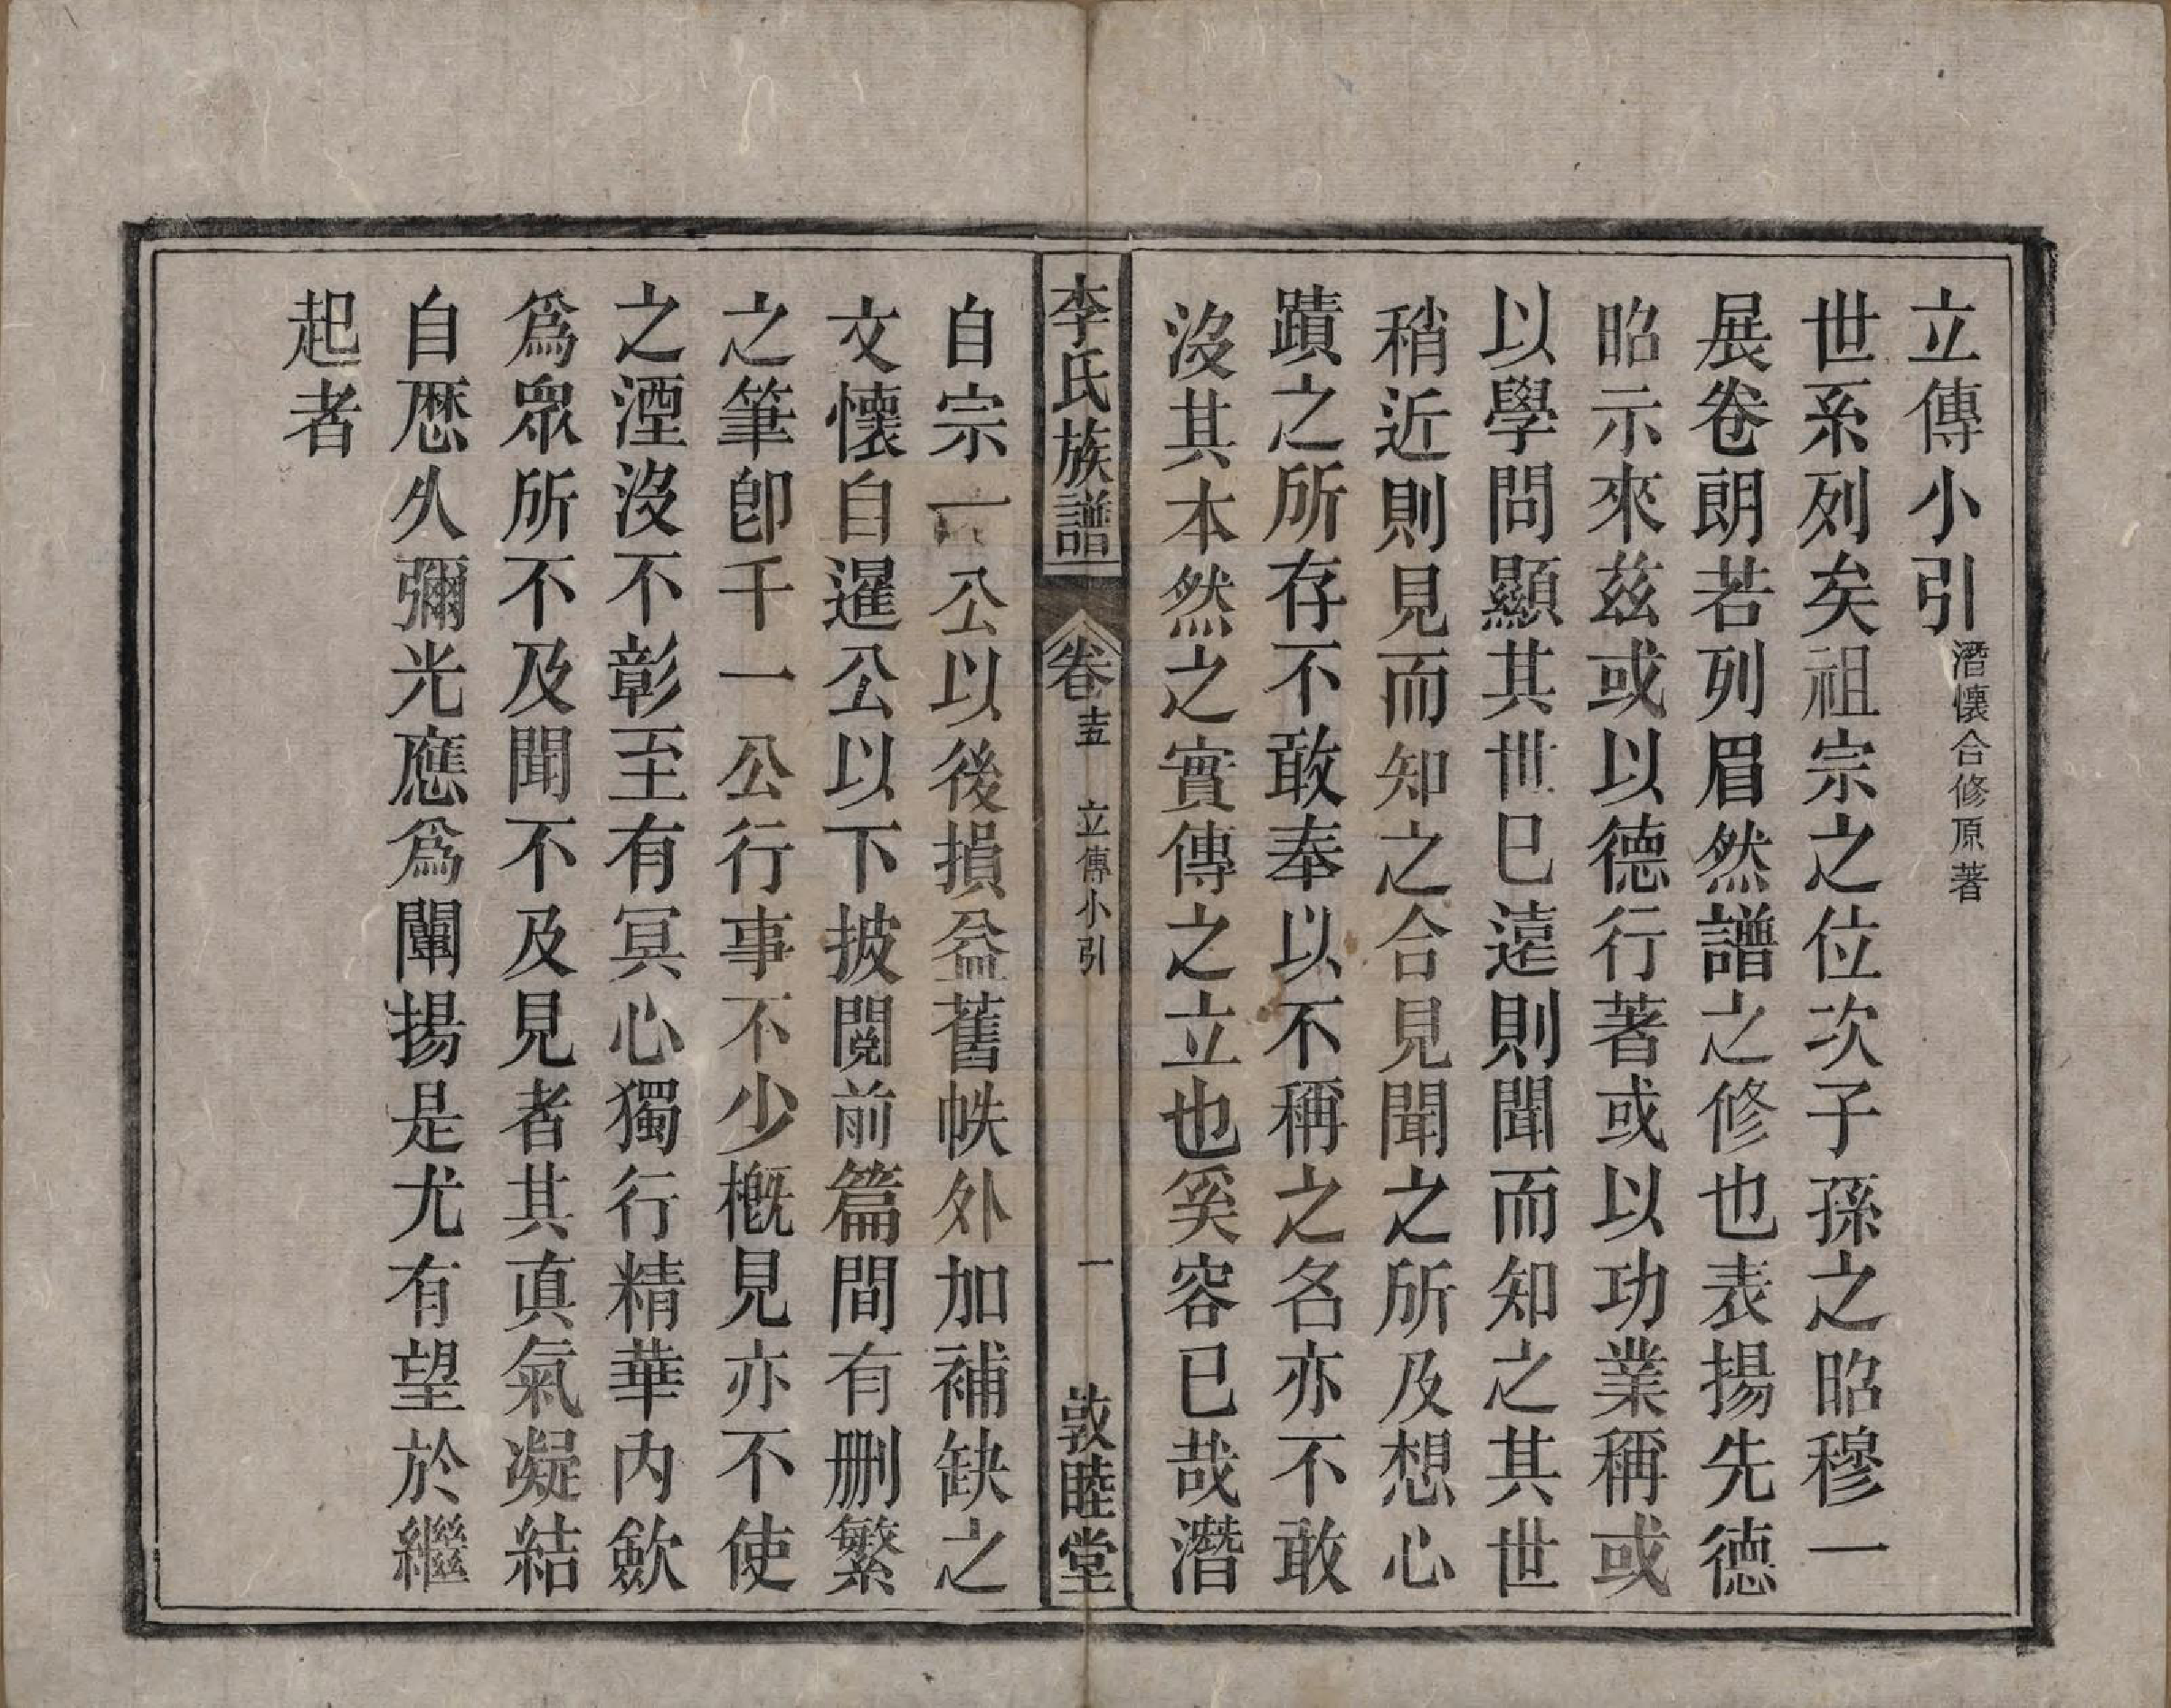 立傳小引 潛懷合修原著
世系列矣祖宗之位次子孫之昭穆一
展卷朗若列眉然譜之修也表揚先德
昭示來茲或以德行著或以功業稱或
以學問顯其世已遠則聞而知之其世
稍近則見而知之合見聞之所及想心
蹟之所存不敢奉以不稱之名亦不敢
沒其本然之實傳之立也奚容已哉潛
李氏族譜 卷十五 立傳小引 一 敦睦堂
自宗一公以後損益舊帙外加補缺之
文懷自暹公以下披閱前篇間有删繁
之筆卽千一公行事不少概見亦不使
之湮沒不彰至有冥心獨行精華内歛
爲眾所不及聞不及見者其真氣凝結
自歷久彌光應爲闡揚是尤有望於繼
起者